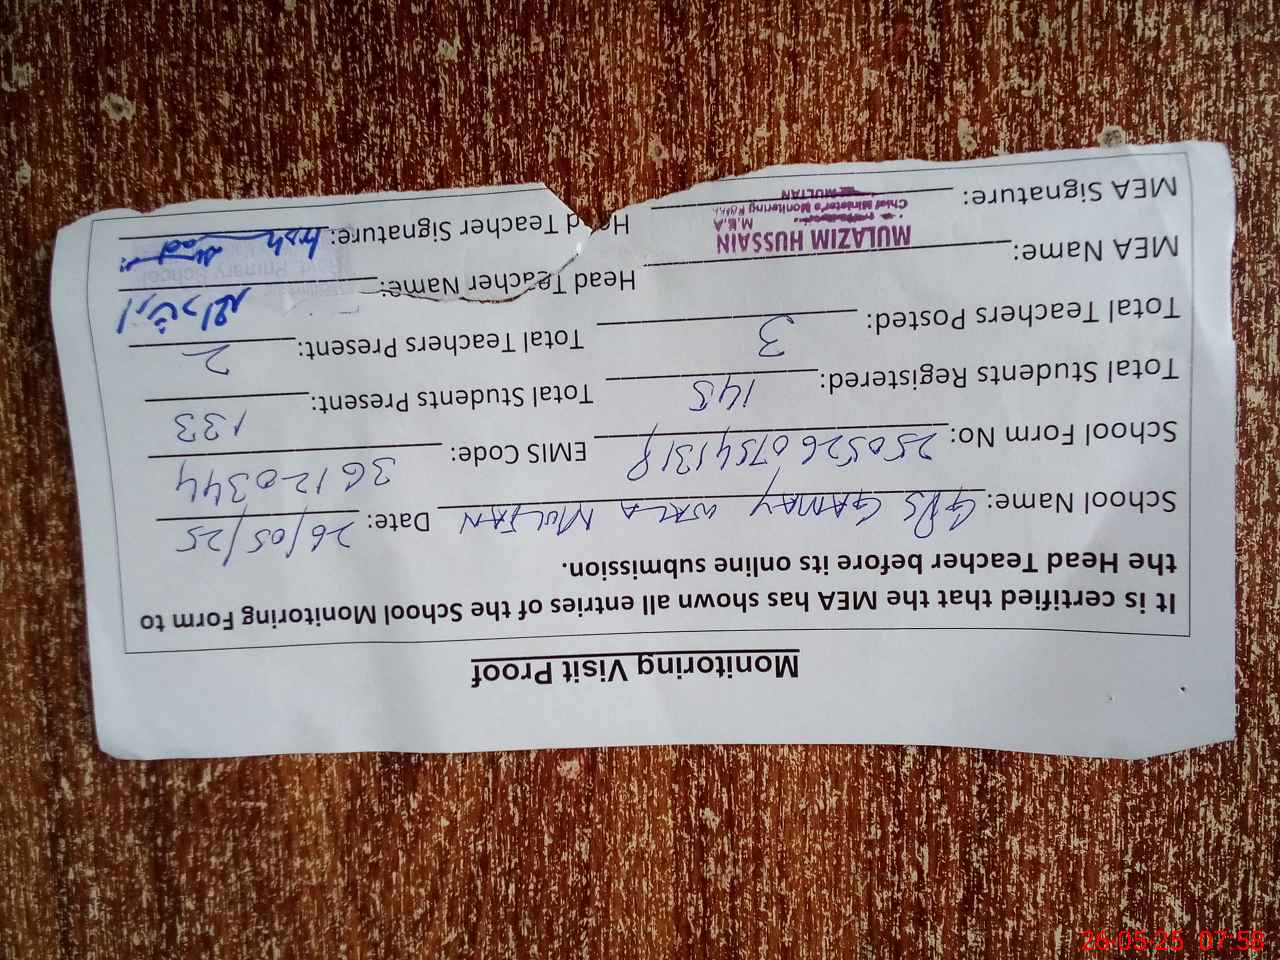 Monitoring Visit Proof
It is certified that the MEA has shown all entries of the School Monitoring Form to
the Head Teacher before its online submission.
School Name: GPS GAMAY WALA MULTAN Date: 26/05/25
School Form No: EMIS Code: 36120344
Total Students Registered: 145 Total Students Present: 133
Total Teachers Posted: 3 Total Teachers Present: 2
MEA Name: Head Teacher Name:
MULAZIM HUSSAIN
M.E.A
Chief Minister's Monitoring
MULTAN
MEA Signature: Head Teacher Signature:
Primary School
26-05-25 07:58